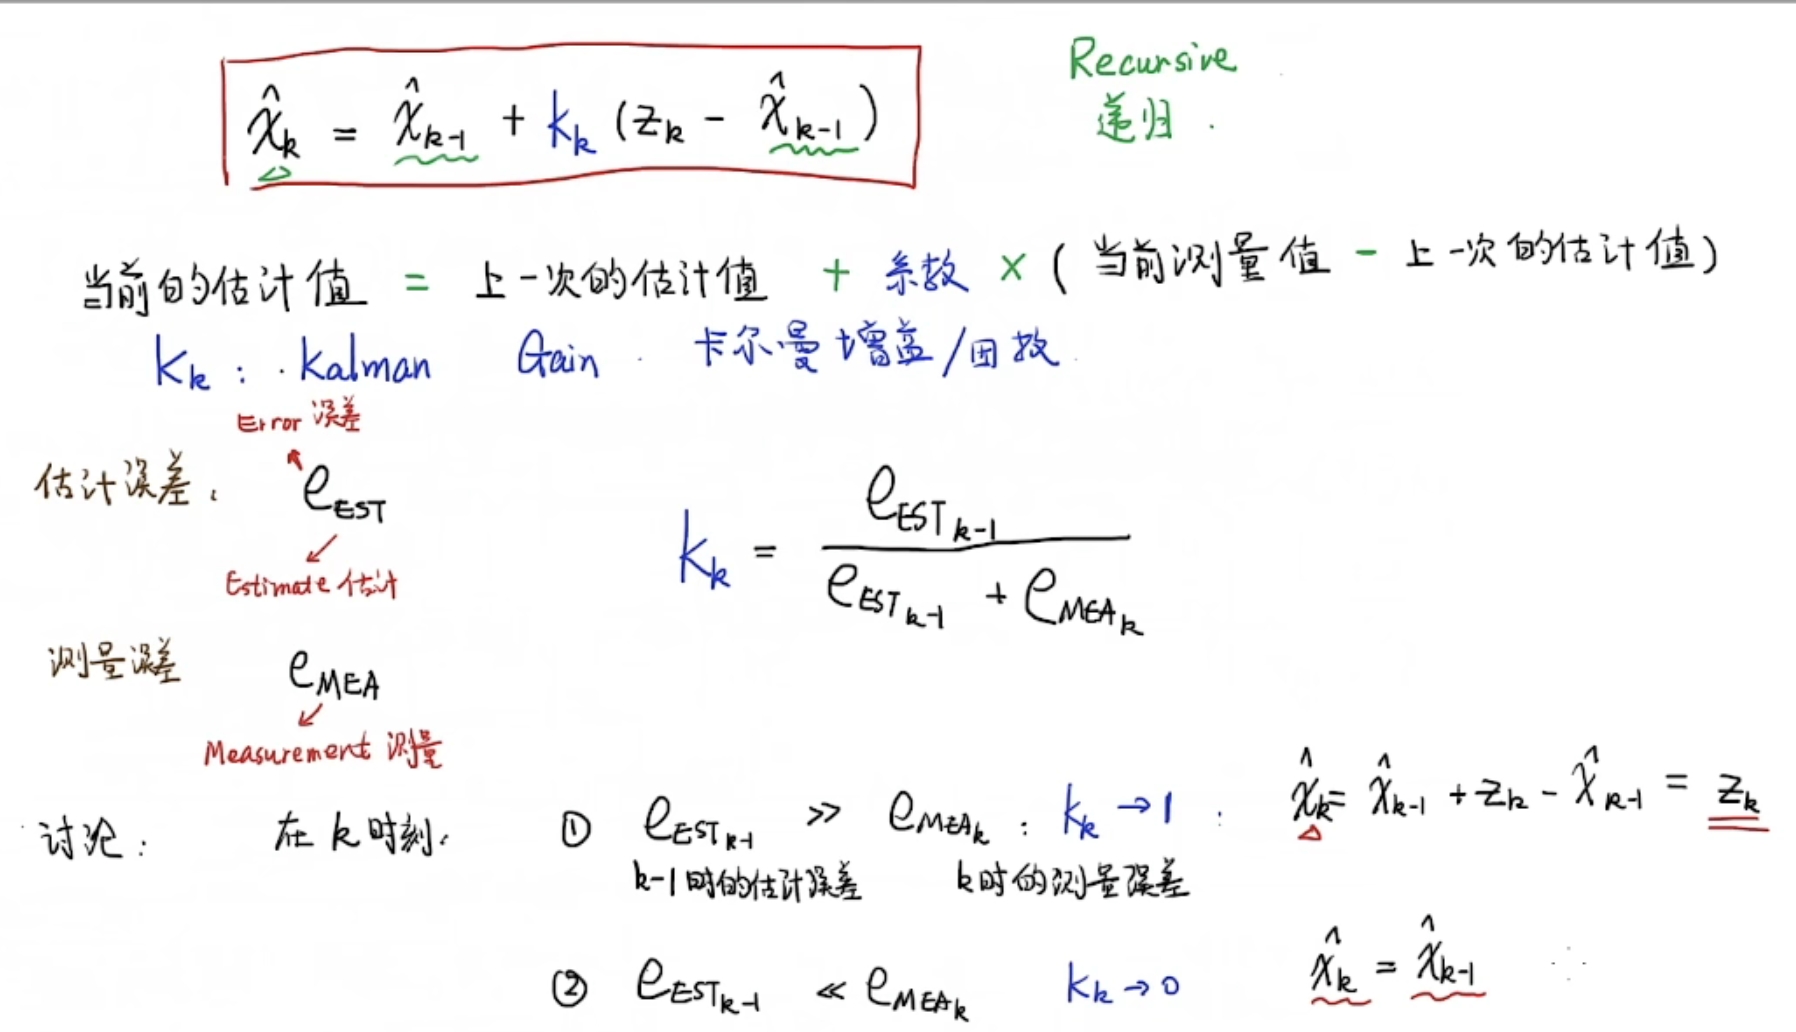 x̂ₖ = x̂ₖ₋₁ + kₖ (zₖ - x̂ₖ₋₁)
Recursive
递归.
当前的估计值 = 上一次的估计值 + 系数 × (当前测量值 - 上一次的估计值)
kₖ: Kalman Gain 卡尔曼增益/因数
Error 误差
估计误差: e_EST
Estimate 估计
kₖ = e_EST ₖ₋₁ / (e_EST ₖ₋₁ + e_MEA ₖ)
测量误差 e_MEA
Measurement 测量
讨论: 在 k 时刻. ① e_EST ₖ₋₁ ≫ e_MEA ₖ: kₖ → 1: x̂ₖ = x̂ₖ₋₁ + zₖ - x̂ₖ₋₁ = zₖ
k-1时的估计误差 k时的测量误差
② e_EST ₖ₋₁ ≪ e_MEA ₖ kₖ → 0 x̂ₖ = x̂ₖ₋₁